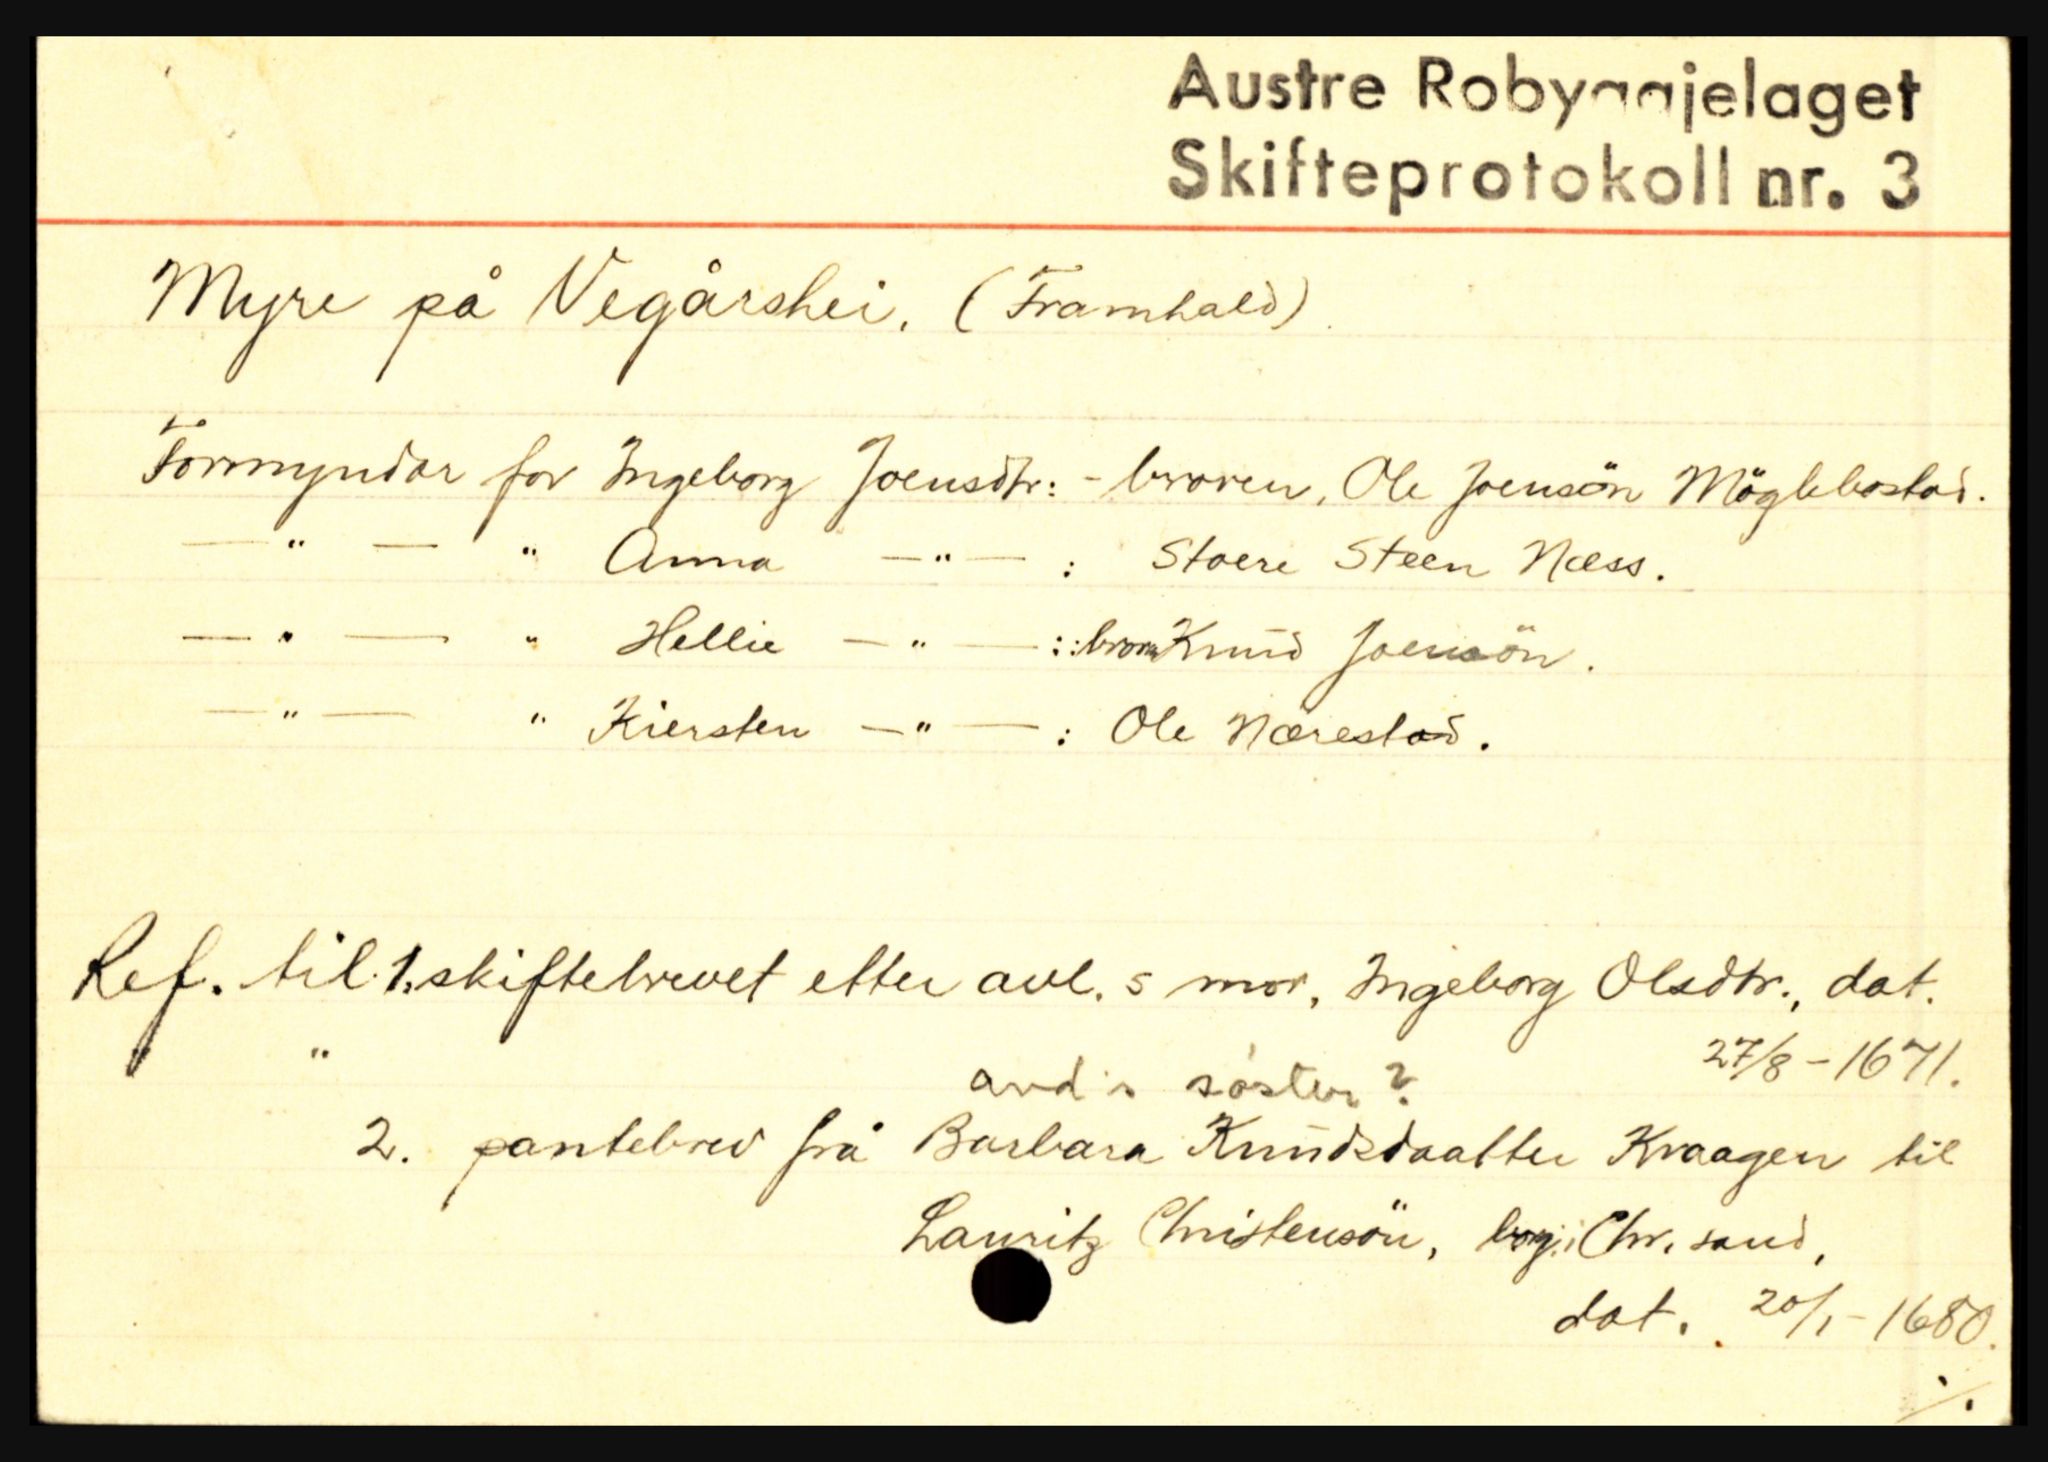 Austre Robyggjelaget
Skifteprotokoll nr. 3
Myre på Vegårshei. (Framhald).
Formyndar for Ingeborg Joensdtr: - broren, Ole Joensön Möglebostad.
— " — " Anna — " — : Stoere Steen Næss.
— " — " Hellie — " — : : broren Knud Joensön.
— " — " Kiersten — " — : Ole Nærestad.
Ref. til 1. skiftebrevet etter avl. s mor, Ingeborg Olsdtr., dat.
" " 27/8 - 1671.
avd's søster?
2. pantebrev frå Barbara Knudsdaatter Kraagen til
Lauritz Christensön, borg. i Chr. sand,
dat. 20/1 - 1680.
./.